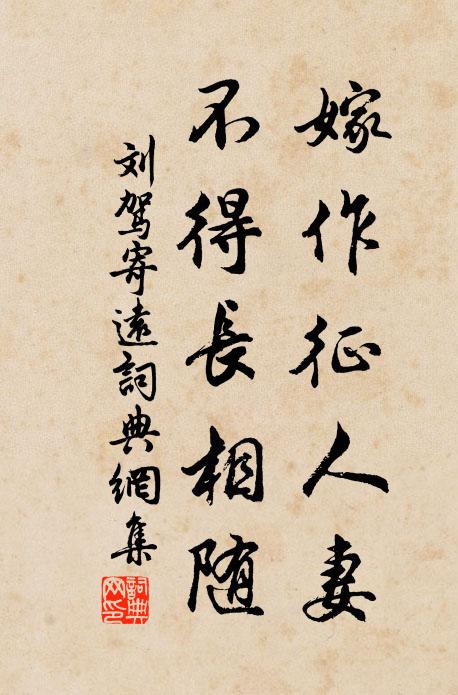 嫁作征人妻
不得長相随
刘駕寄遠詞典網集
詞典網印